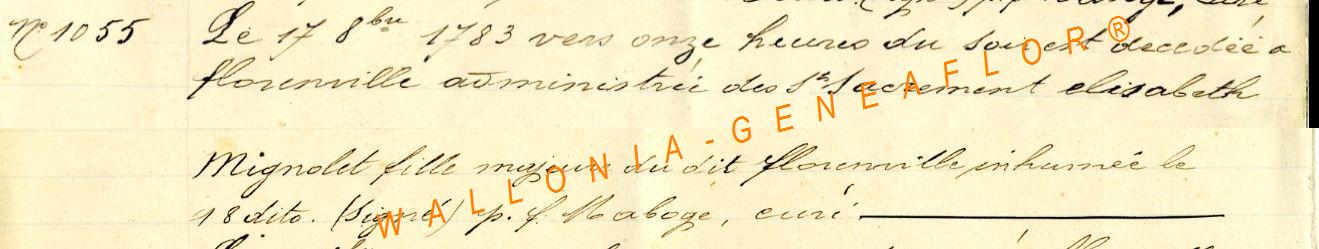 N° 1055 Le 17 8bre 1783 vers onze heures du soir est decedée a
florenville administrée des Sts Sacrement elisabeth
Mignolet fille majeure du dit florenville, inhumée le
18 dito. (Signé) p. f. Maboge, curé
WALLONIA-GENEAFLOR®